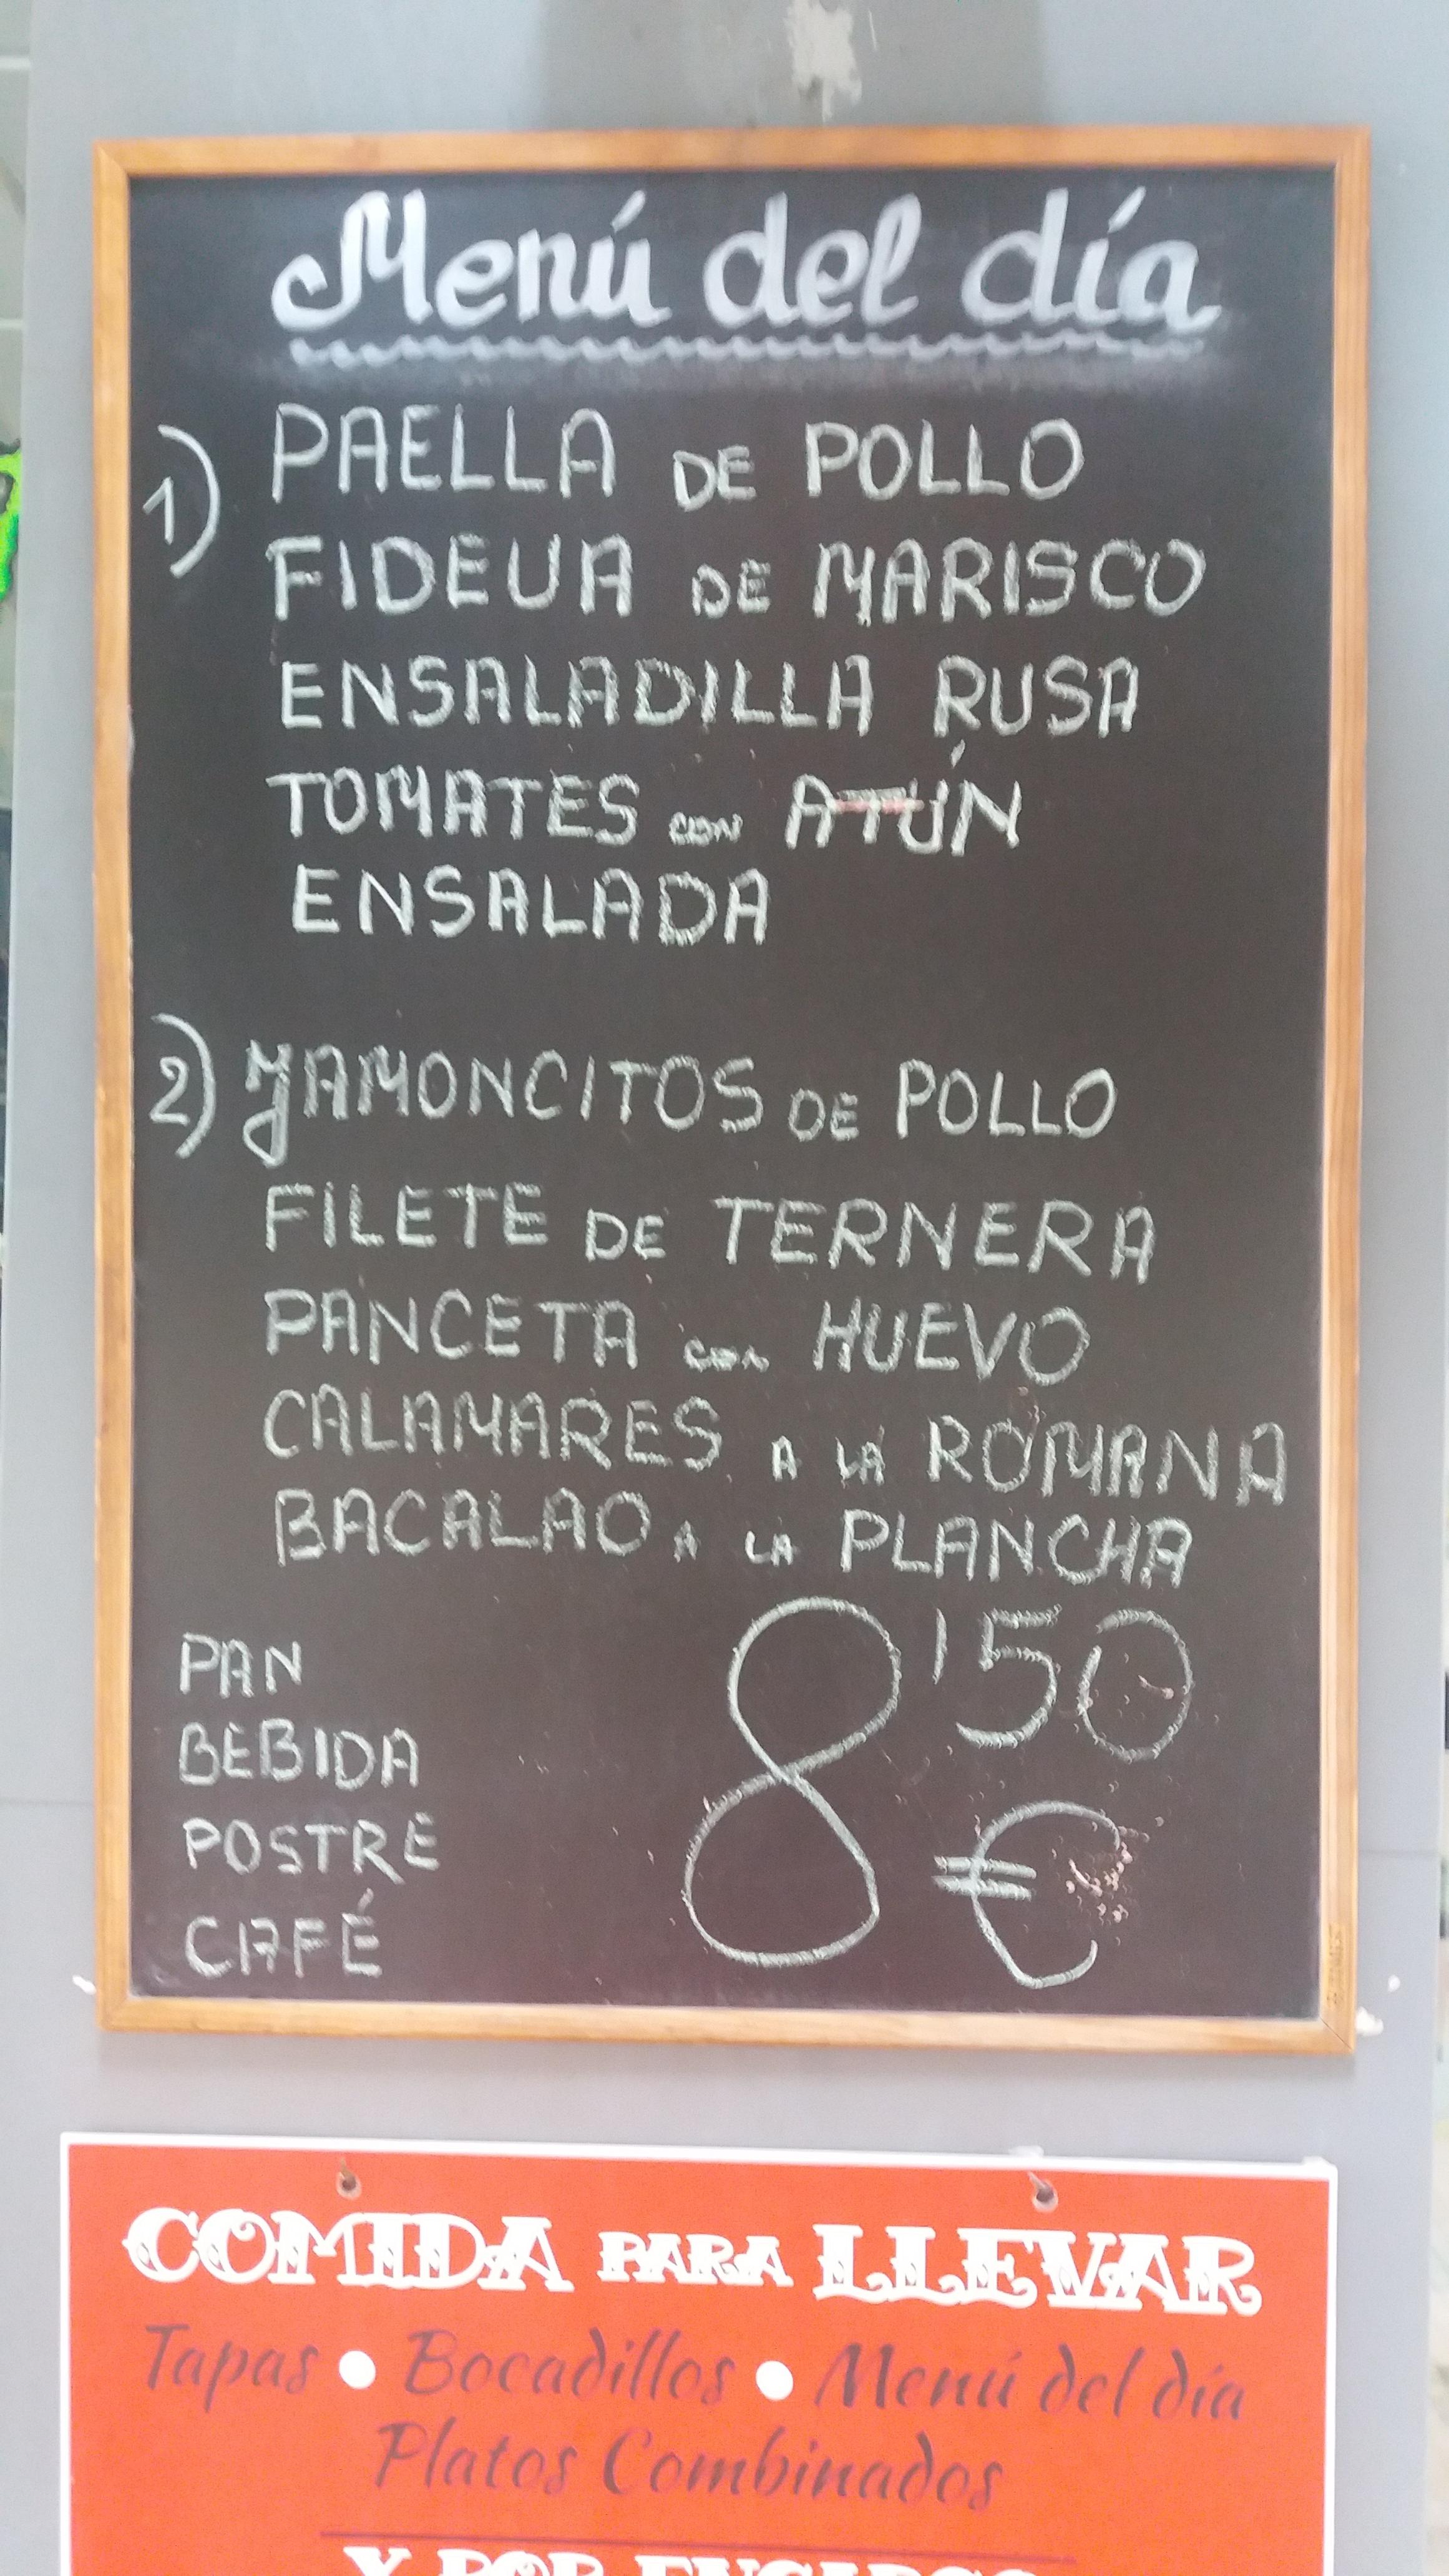 Menú del día
1) PAELLA DE POLLO
FIDEUA DE MARISCO
ENSALADILLA RUSA
TOMATES con ATÚN
ENSALADA
2) JAMONCITOS DE POLLO
FILETE DE TERNERA
PANCETA con HUEVO
CALAMARES A LA ROMANA
BACALAO A LA PLANCHA
PAN
BEBIDA
POSTRE
CAFÉ
8'50
€
COMIDA PARA LLEVAR
Tapas • Bocadillos • Menú del día
Platos Combinados
Y POR ENCARGO